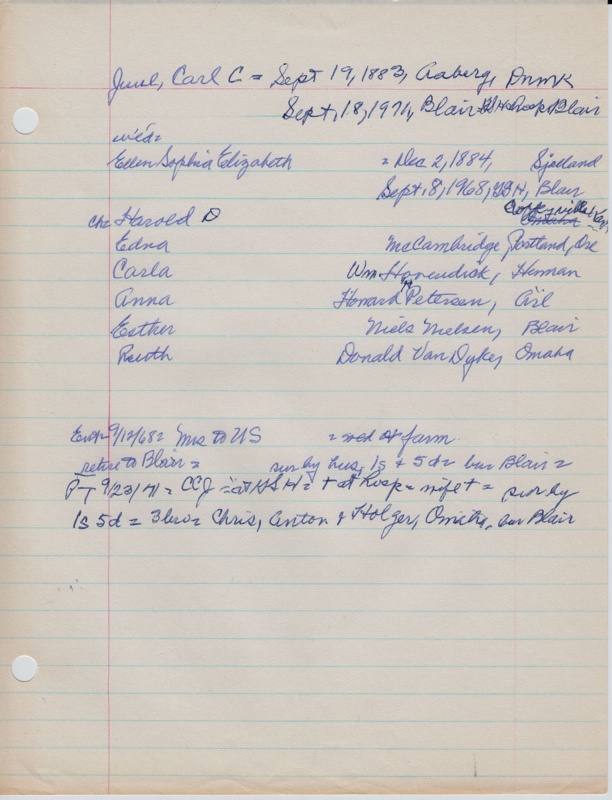 Juul, Carl C = Sept 19, 1883, Aaberg, Dnmk
Sept, 18, 1971, Blair = Hosp Blair
wed =
Ellen Sophia Elizabeth = Dec 2, 1884, Sjelland
Sept, 8, 1968, H, Blair
Coffeyville, Kan,
ch = Harold D Omaha
Edna McCambridge Portland, Ore
Carla Wm Hovendick, Herman
Anna Howard Petersen, Arl
Esther Niels Nielsen, Blair
Ruth Donald Van Dyke, Omaha
Ent = 9/12/68 = Mrs to US = wed farm
retire to Blair = sur by hus, 1s + 5d = bur Blair =
P-T 9/23/71 = CCJ = at H = + at hosp = wife + = sur by
1s 5d = 3 bro = Chris, Anton + Holger, Omaha, bur Blair